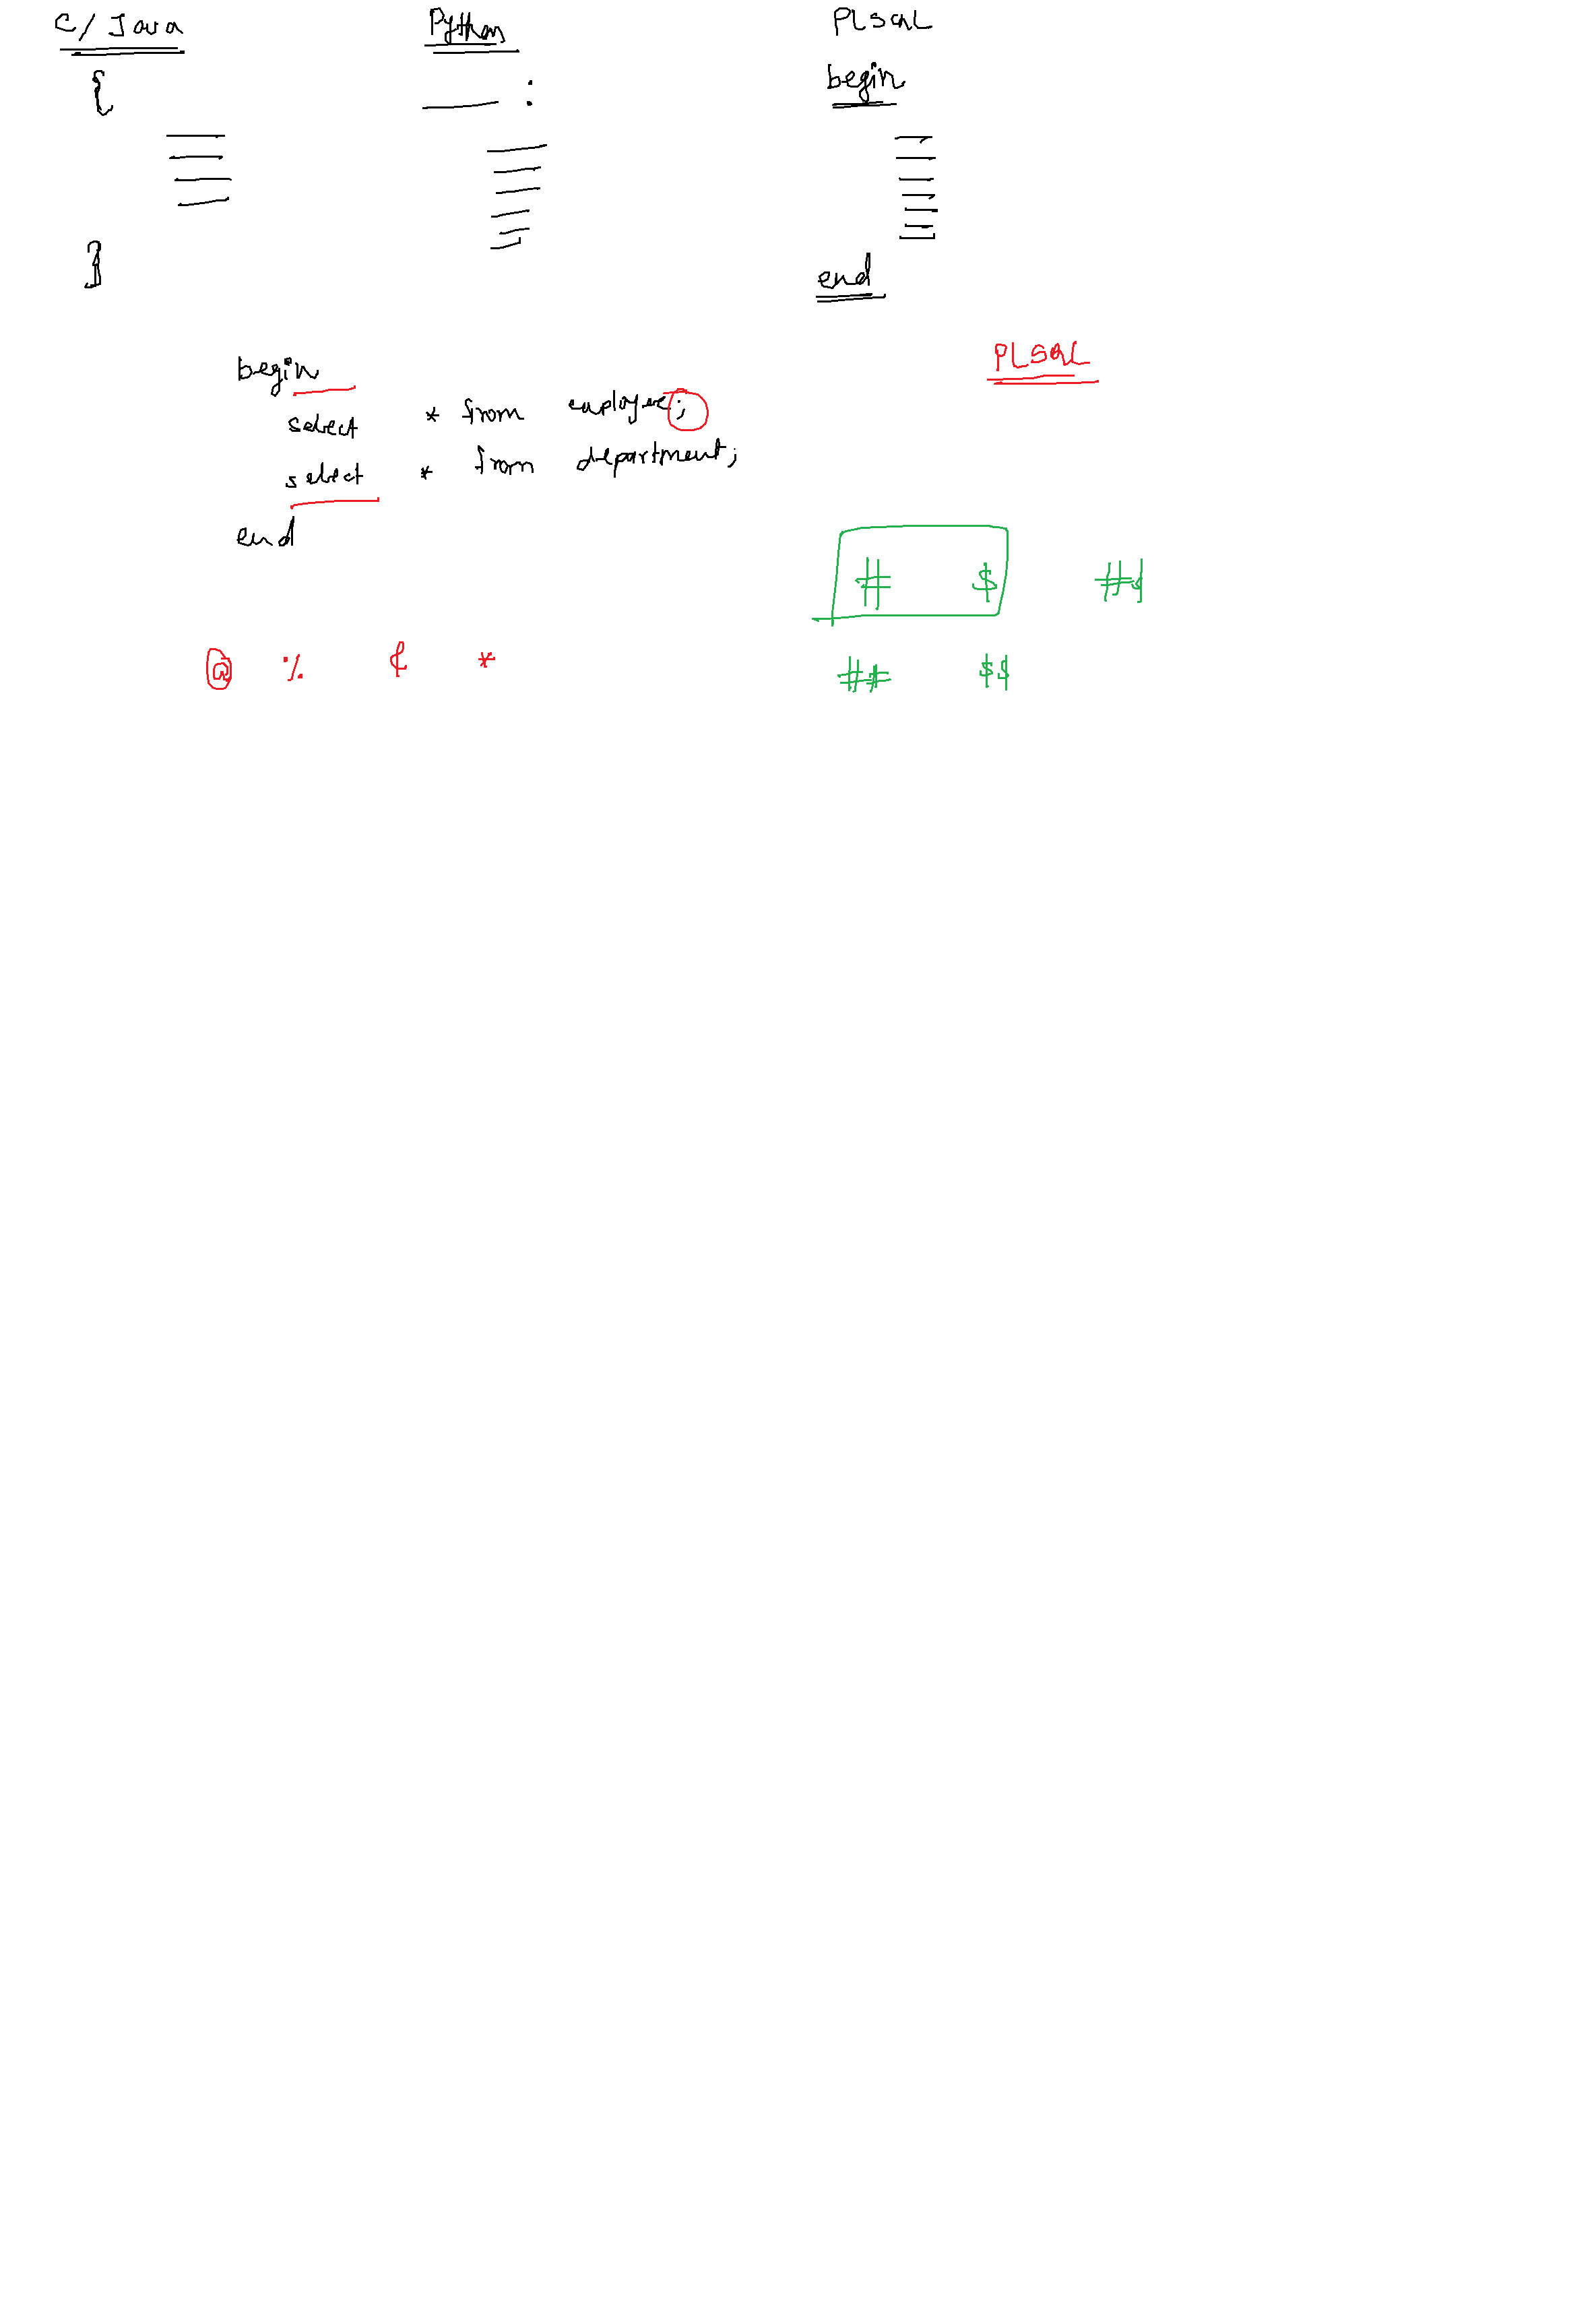 C/Java Python PLSQL
{ : begin
} end
begin PLSQL
select * from employee;
select * from department;
end
# $ #$
@ % ¢ * ## $$